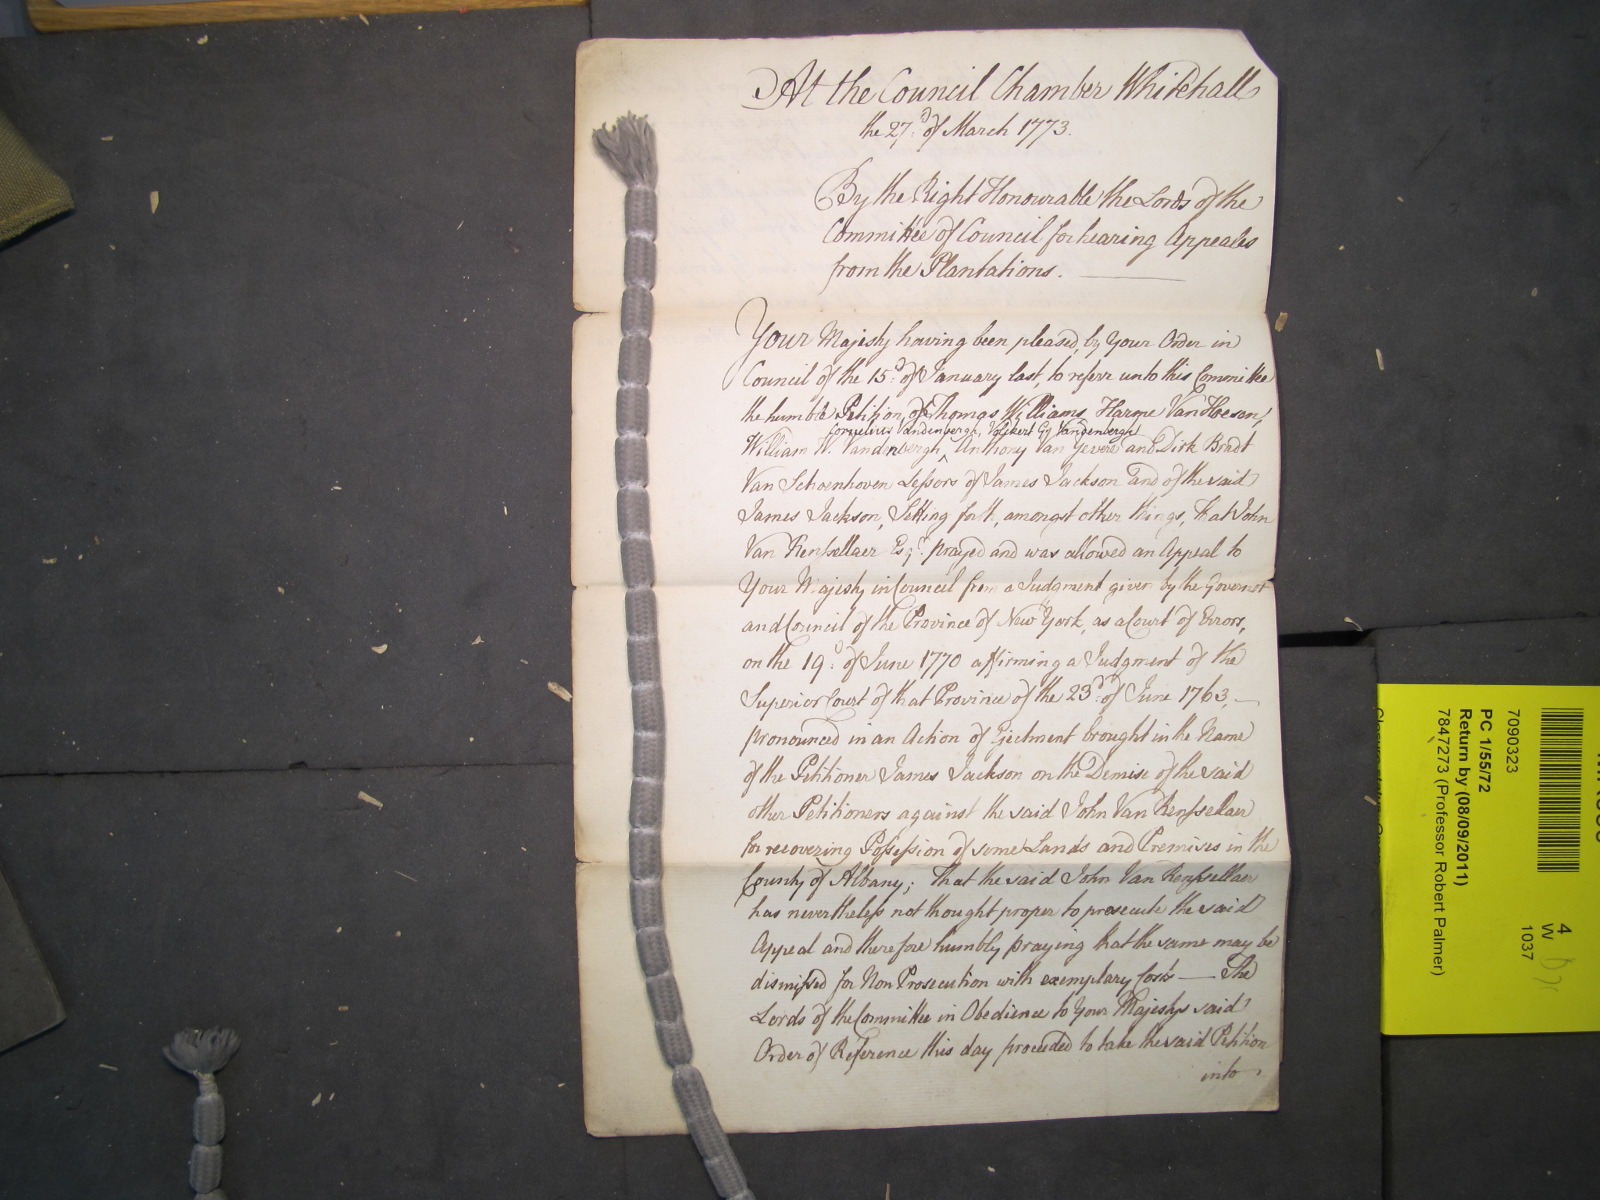 At the Council Chamber Whitehall
the 27.d of March 1773.
By the Right Honourable the Lords of the
Committee of Council for hearing Appeales
from the Plantations.
Your Majesty having been pleased, by Your Order in
Council of the 15.d of January last, to referr unto this Committee
the humble Petition of Thomas Williams, Harme Van Hoesen,
Cornelius Vandenbergh, Volckert G. Vandenbergh
William W. Vandenbergh, ^ Anthony Van Yevere and Dirk Bradt
Van Schoenhoven Lessors of James Jackson and of the said
James Jackson, Setting forth, amongst other things, that John
Van Rensellaer Esq.r prayed and was allowed an Appeal to
Your Majesty in Council from a Judgment given by the Governor
and Council of the Province of New York, as a Court of Errors,
on the 19.d of June 1770 affirming a Judgment of the
Superior Court of that Province of the 23.d of June 1763, —
pronounced in an Action of Ejectment brought in the Name
of the Petitioner James Jackson on the Demise of the said
other Petitioners against the said John Van Rensselaer
for recovering Possession of some Lands and Premises in the
County of Albany; that the said John Van Rensellaer
has nevertheless not thought proper to prosecute the said
Appeal and therefore humbly praying that the same may be
dismissed for Non Prosecution with exemplary Costs — The
Lords of the Committee in Obedience to Your Majestys said
Order of Reference this day proceeded to take the said Petition
into
7090323
4
W
1037
PC 1/55/72
Return by (08/09/2011)
7847273 (Professor Robert Palmer)